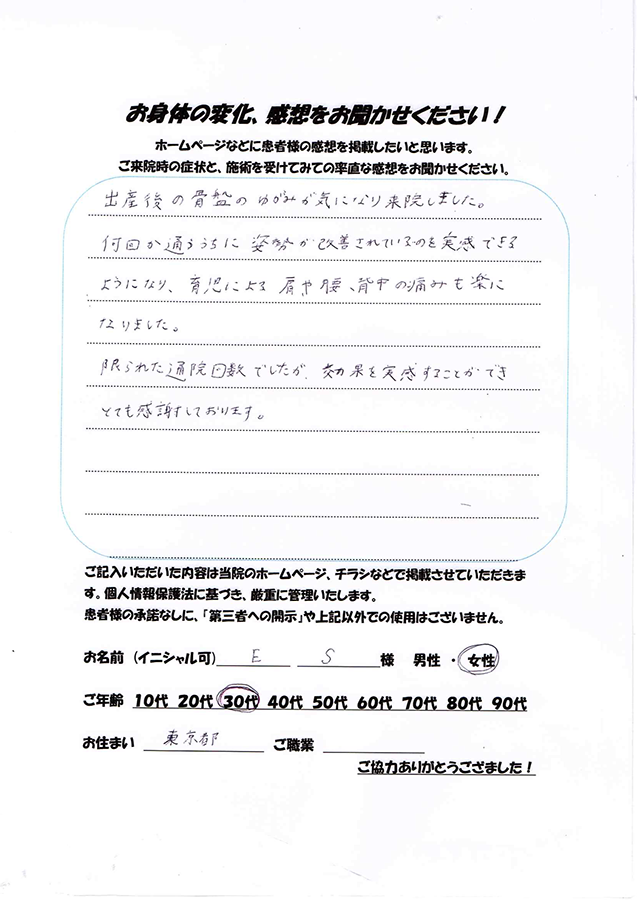 お身体の変化、感想をお聞かせください！
ホームページなどに患者様の感想を掲載したいと思います。
ご来院時の症状と、施術を受けてみての率直な感想をお聞かせください。
出産後の骨盤のゆがみが気になり来院しました。
何回か通ううちに姿勢が改善されているのを実感できる
ようになり、育児による肩や腰、背中の痛みも楽に
なりました。
限られた通院回数でしたが、効果を実感することができ
とても感謝しております。
ご記入いただいた内容は当院のホームページ、チラシなどで掲載させていただきま
す。個人情報保護法に基づき、厳重に管理いたします。
患者様の承諾なしに、「第三者への開示」や上記以外での使用はございません。
お名前（イニシャル可） E S 様 男性 ・ 女性
ご年齢 10代 20代 30代 40代 50代 60代 70代 80代 90代
お住まい 東京都 ご職業
ご協力ありがとうござました！